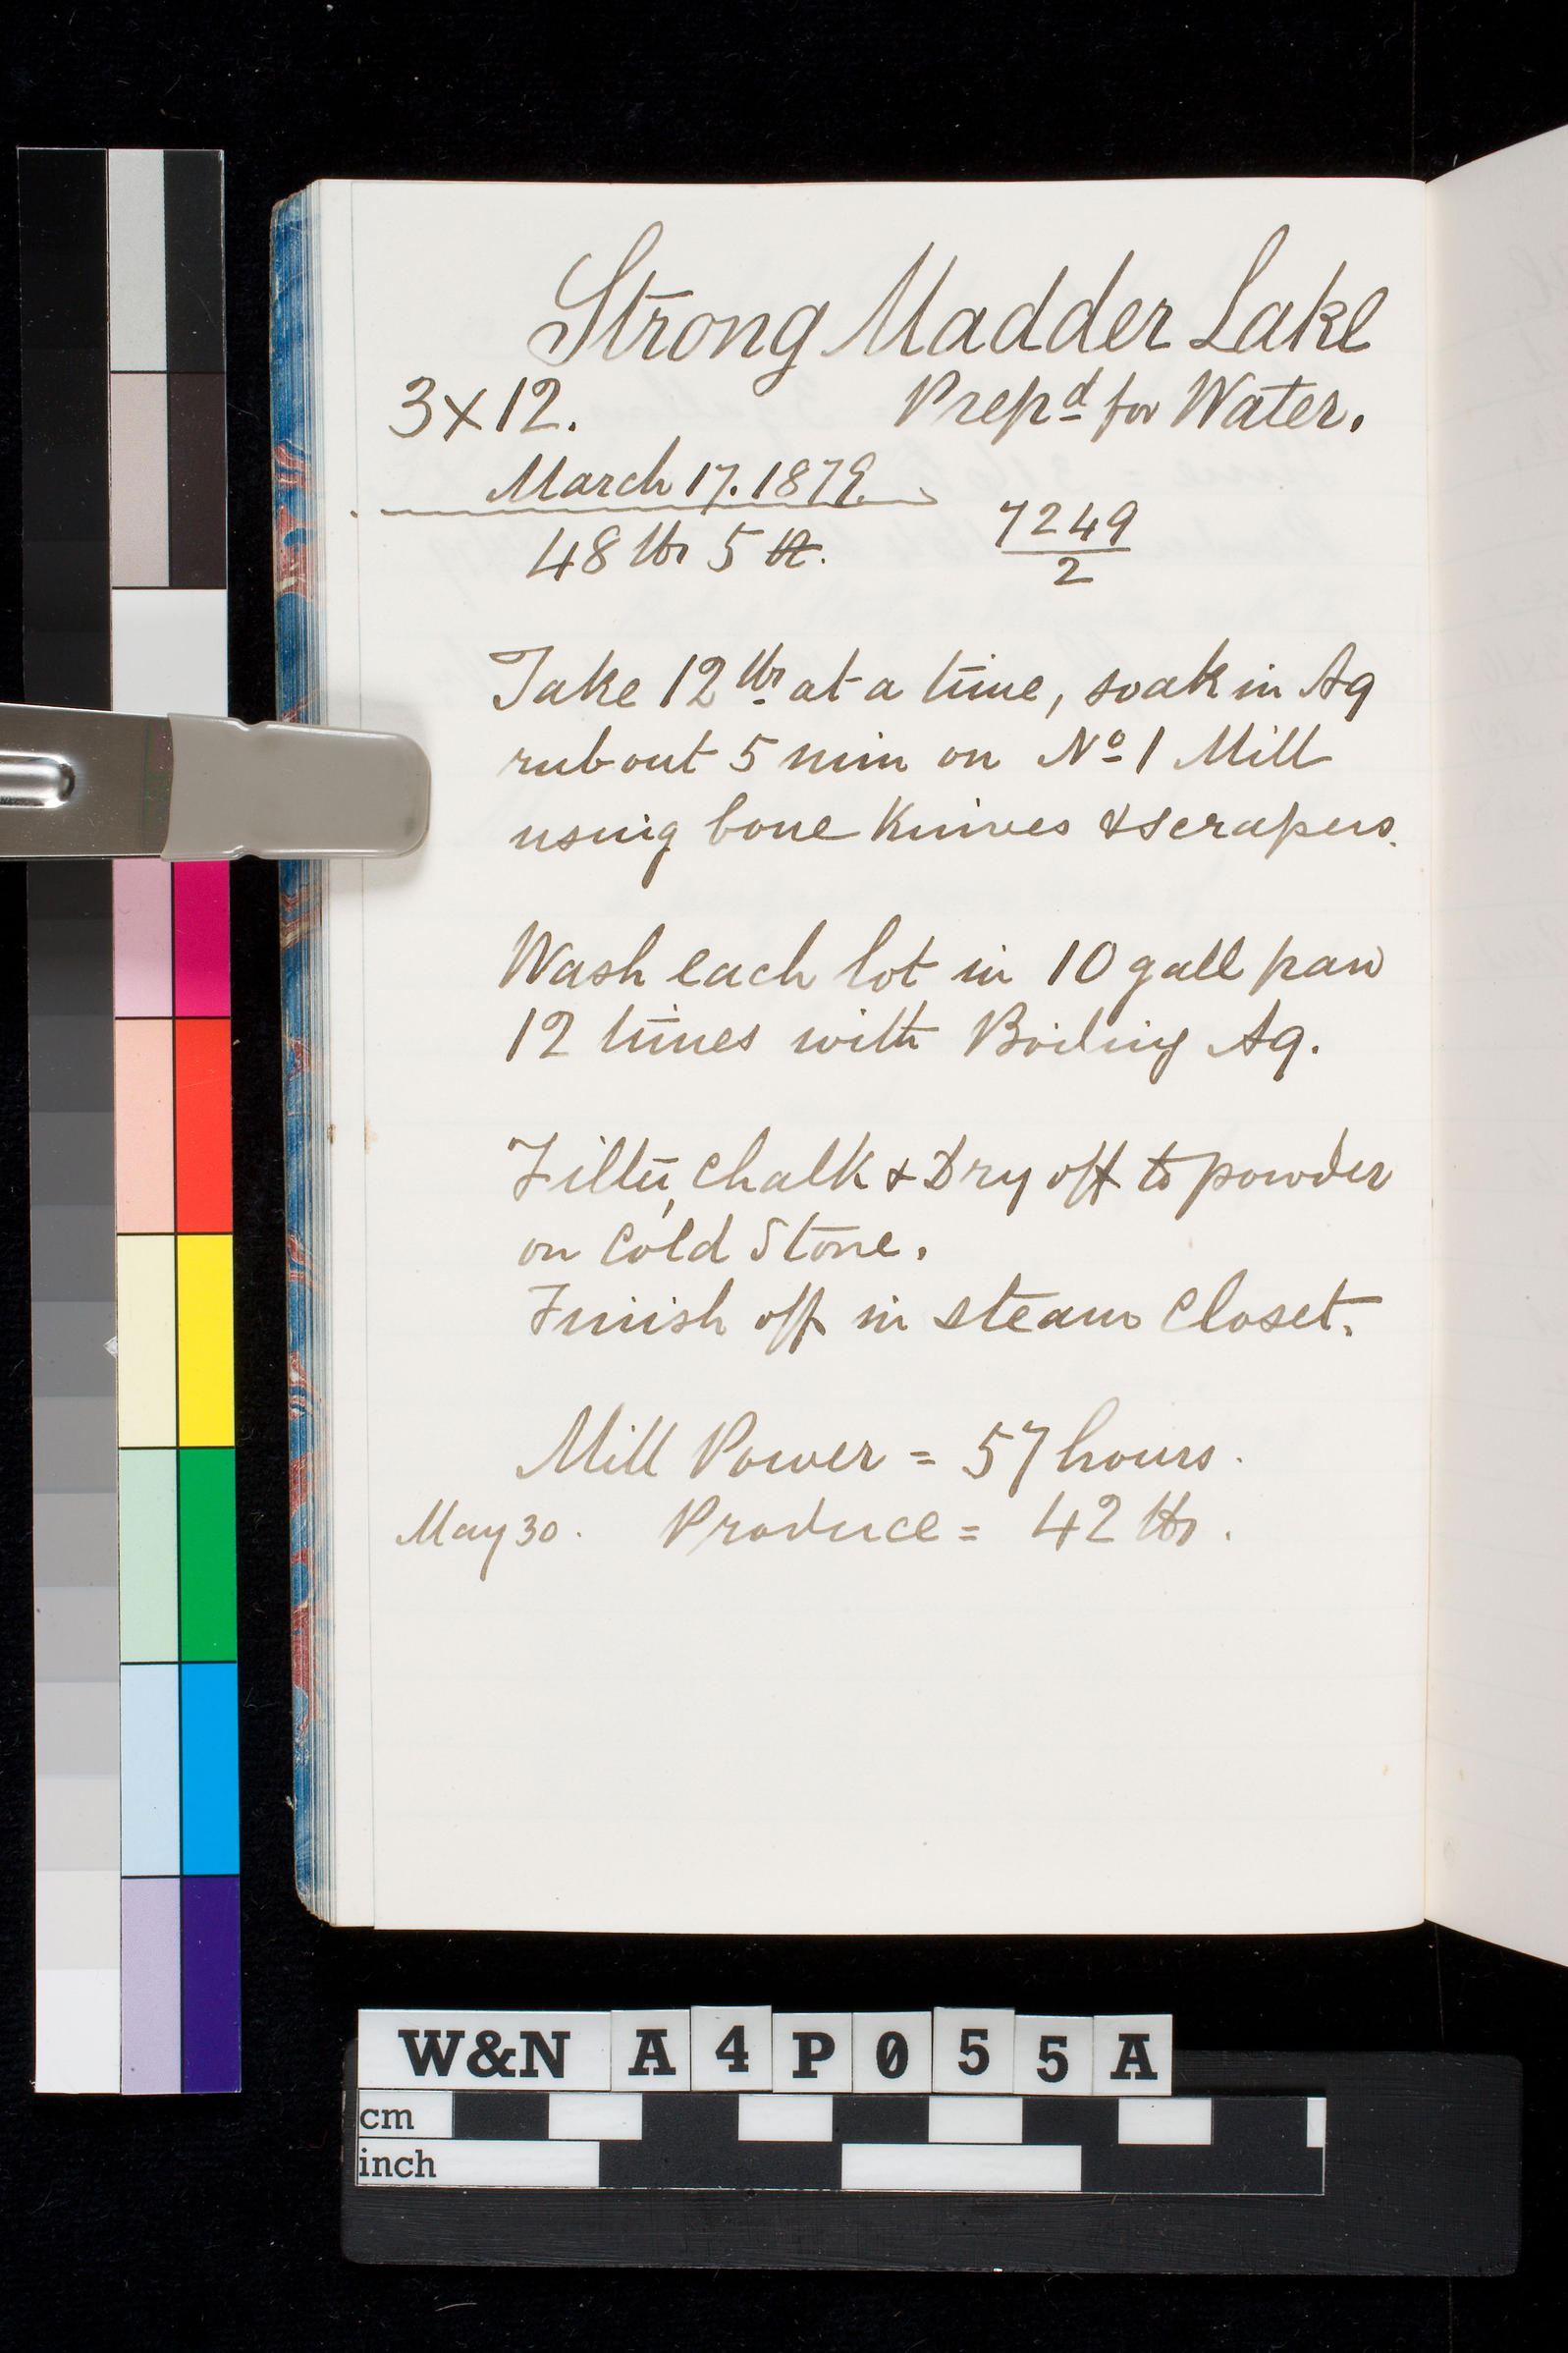 Strong Madder Lake
3x12. Prepd for Water.
March 17. 1879.
48 lbs 5 7249
2
Take 12 lbs at a time, soak in Aq
rub out 5 min on No 1 Mill
using bone knives & scrapers.
Wash each lot in 10 gall pan
12 times with Boiling Aq.
Filter, chalk & Dry off to powder
on Cold Stone.
Finish off in steam Closet.
Mill Power = 57 hours.
May 30. Produce = 42 lbs.
W&N A4P055A
cm
inch